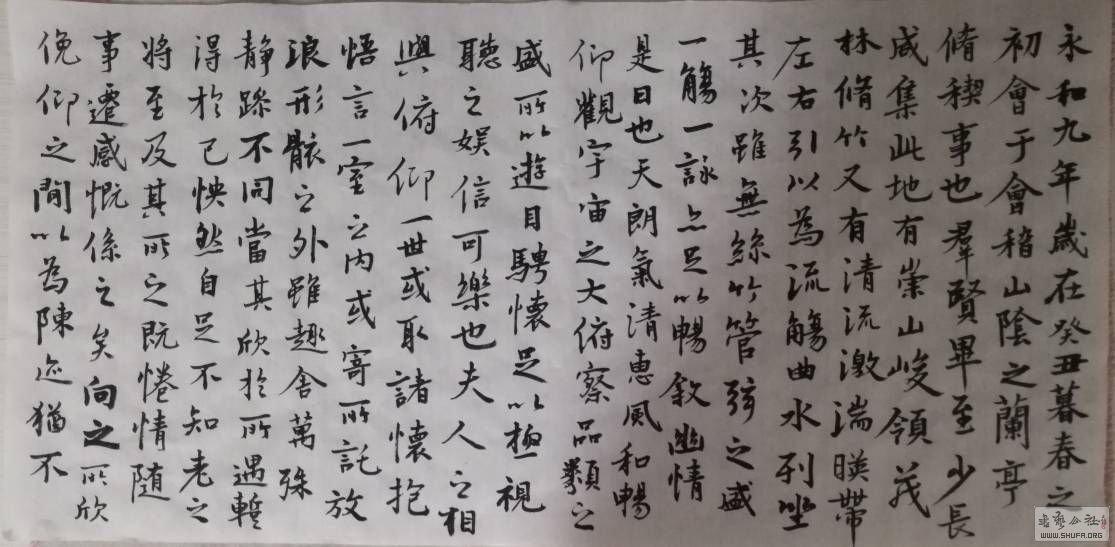 永和九年歲在癸丑暮春之
初會于會稽山陰之蘭亭
脩稧事也羣賢畢至少長
咸集此地有崇山峻領茂
林脩竹又有清流激湍暎帶
左右引以為流觴曲水列坐
其次雖無絲竹管弦之盛
一觴一詠亦足以暢敘幽情
是日也天朗氣清惠風和暢
仰觀宇宙之大俯察品類之
盛所以遊目騁懷足以極視
聽之娛信可樂也夫人之相
與俯仰一世或取諸懷抱
悟言一室之內或寄所託放
浪形骸之外雖趣舍萬殊
静躁不同當其欣於所遇蹔
得於己怏然自足不知老之
將至及其所之既惓情隨
事遷感慨係之矣向之所欣
俛仰之閒以為陳迹猶不
書法公社
WWW.SHUFA.ORG